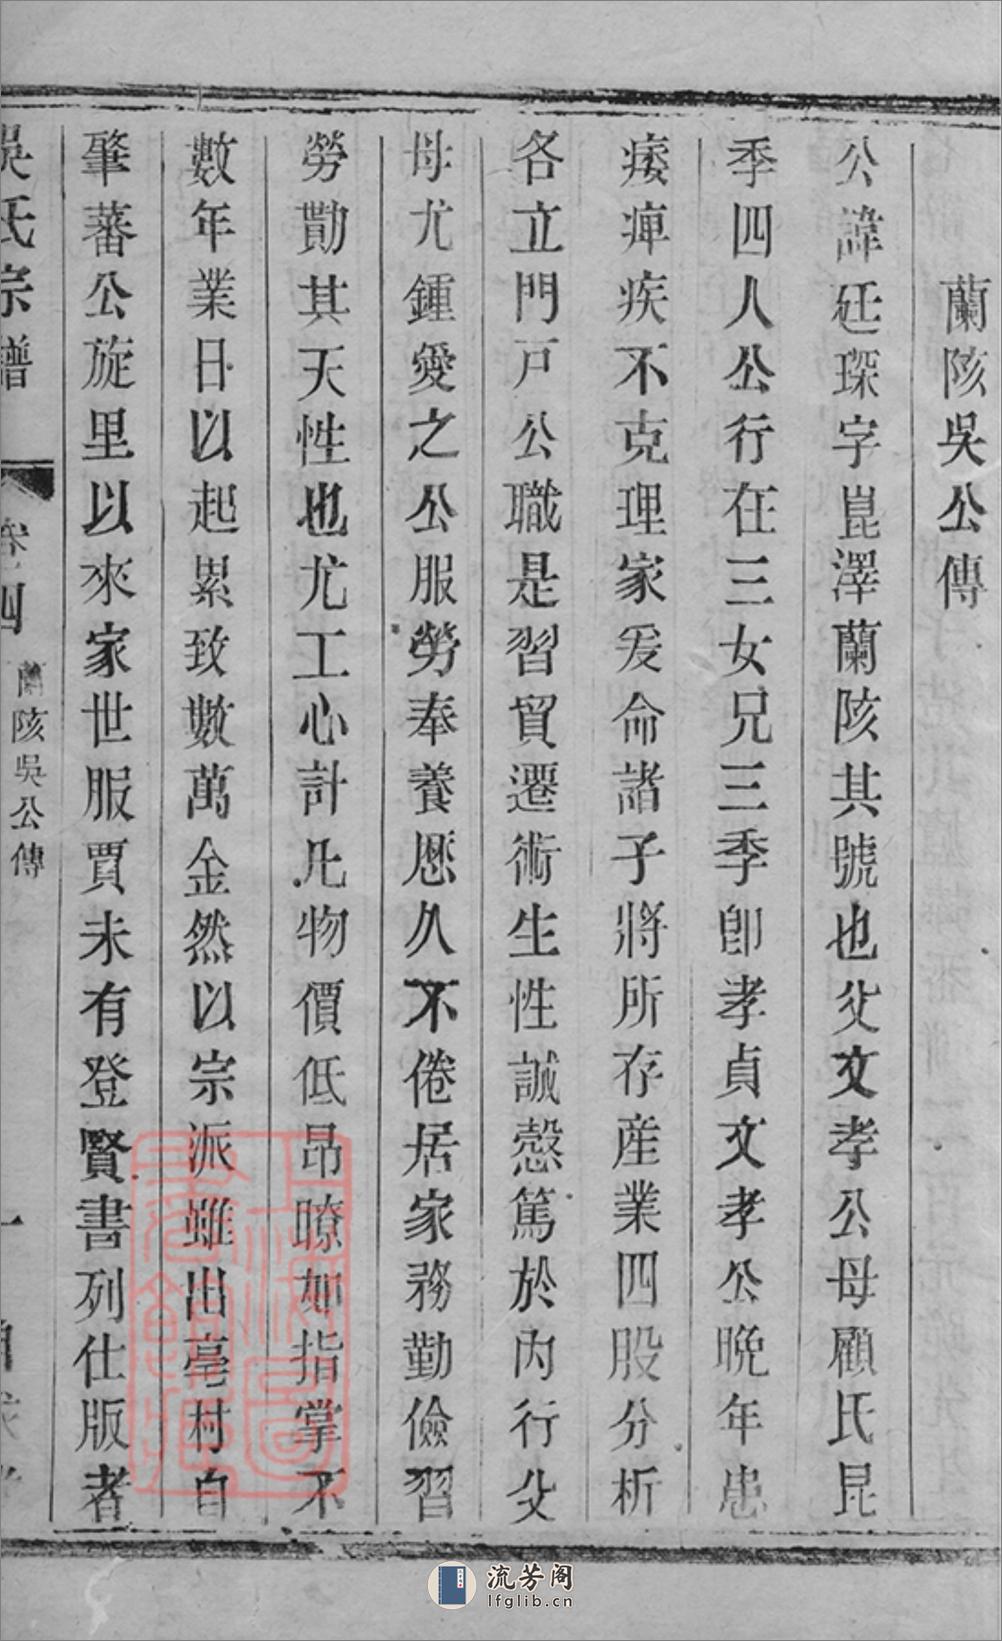 蘭陔吳公傳
公諱廷琛字崑澤蘭陔其號也父文孝公母顧氏昆
季四人公行在三女兄三季卽孝貞文孝公晚年患
痿痺疾不克理家爰命諸子將所存産業四股分析
各立門戸公職是習貿遷術生性誠慤篤於內行父
母尤鍾愛之公服勞奉養愿久不倦居家務勤儉習
勞勩其天性也尤工心計凡物價低昂瞭如指掌不
數年業日以起累致數萬金然以宗派雖出亳村自
肇蕃公旋里以來家世服賈未有登賢書列仕版者
吳氏宗譜
卷四
蘭陔吳公傳
一
上海圖書館藏
流芳阁
lfglib.cn